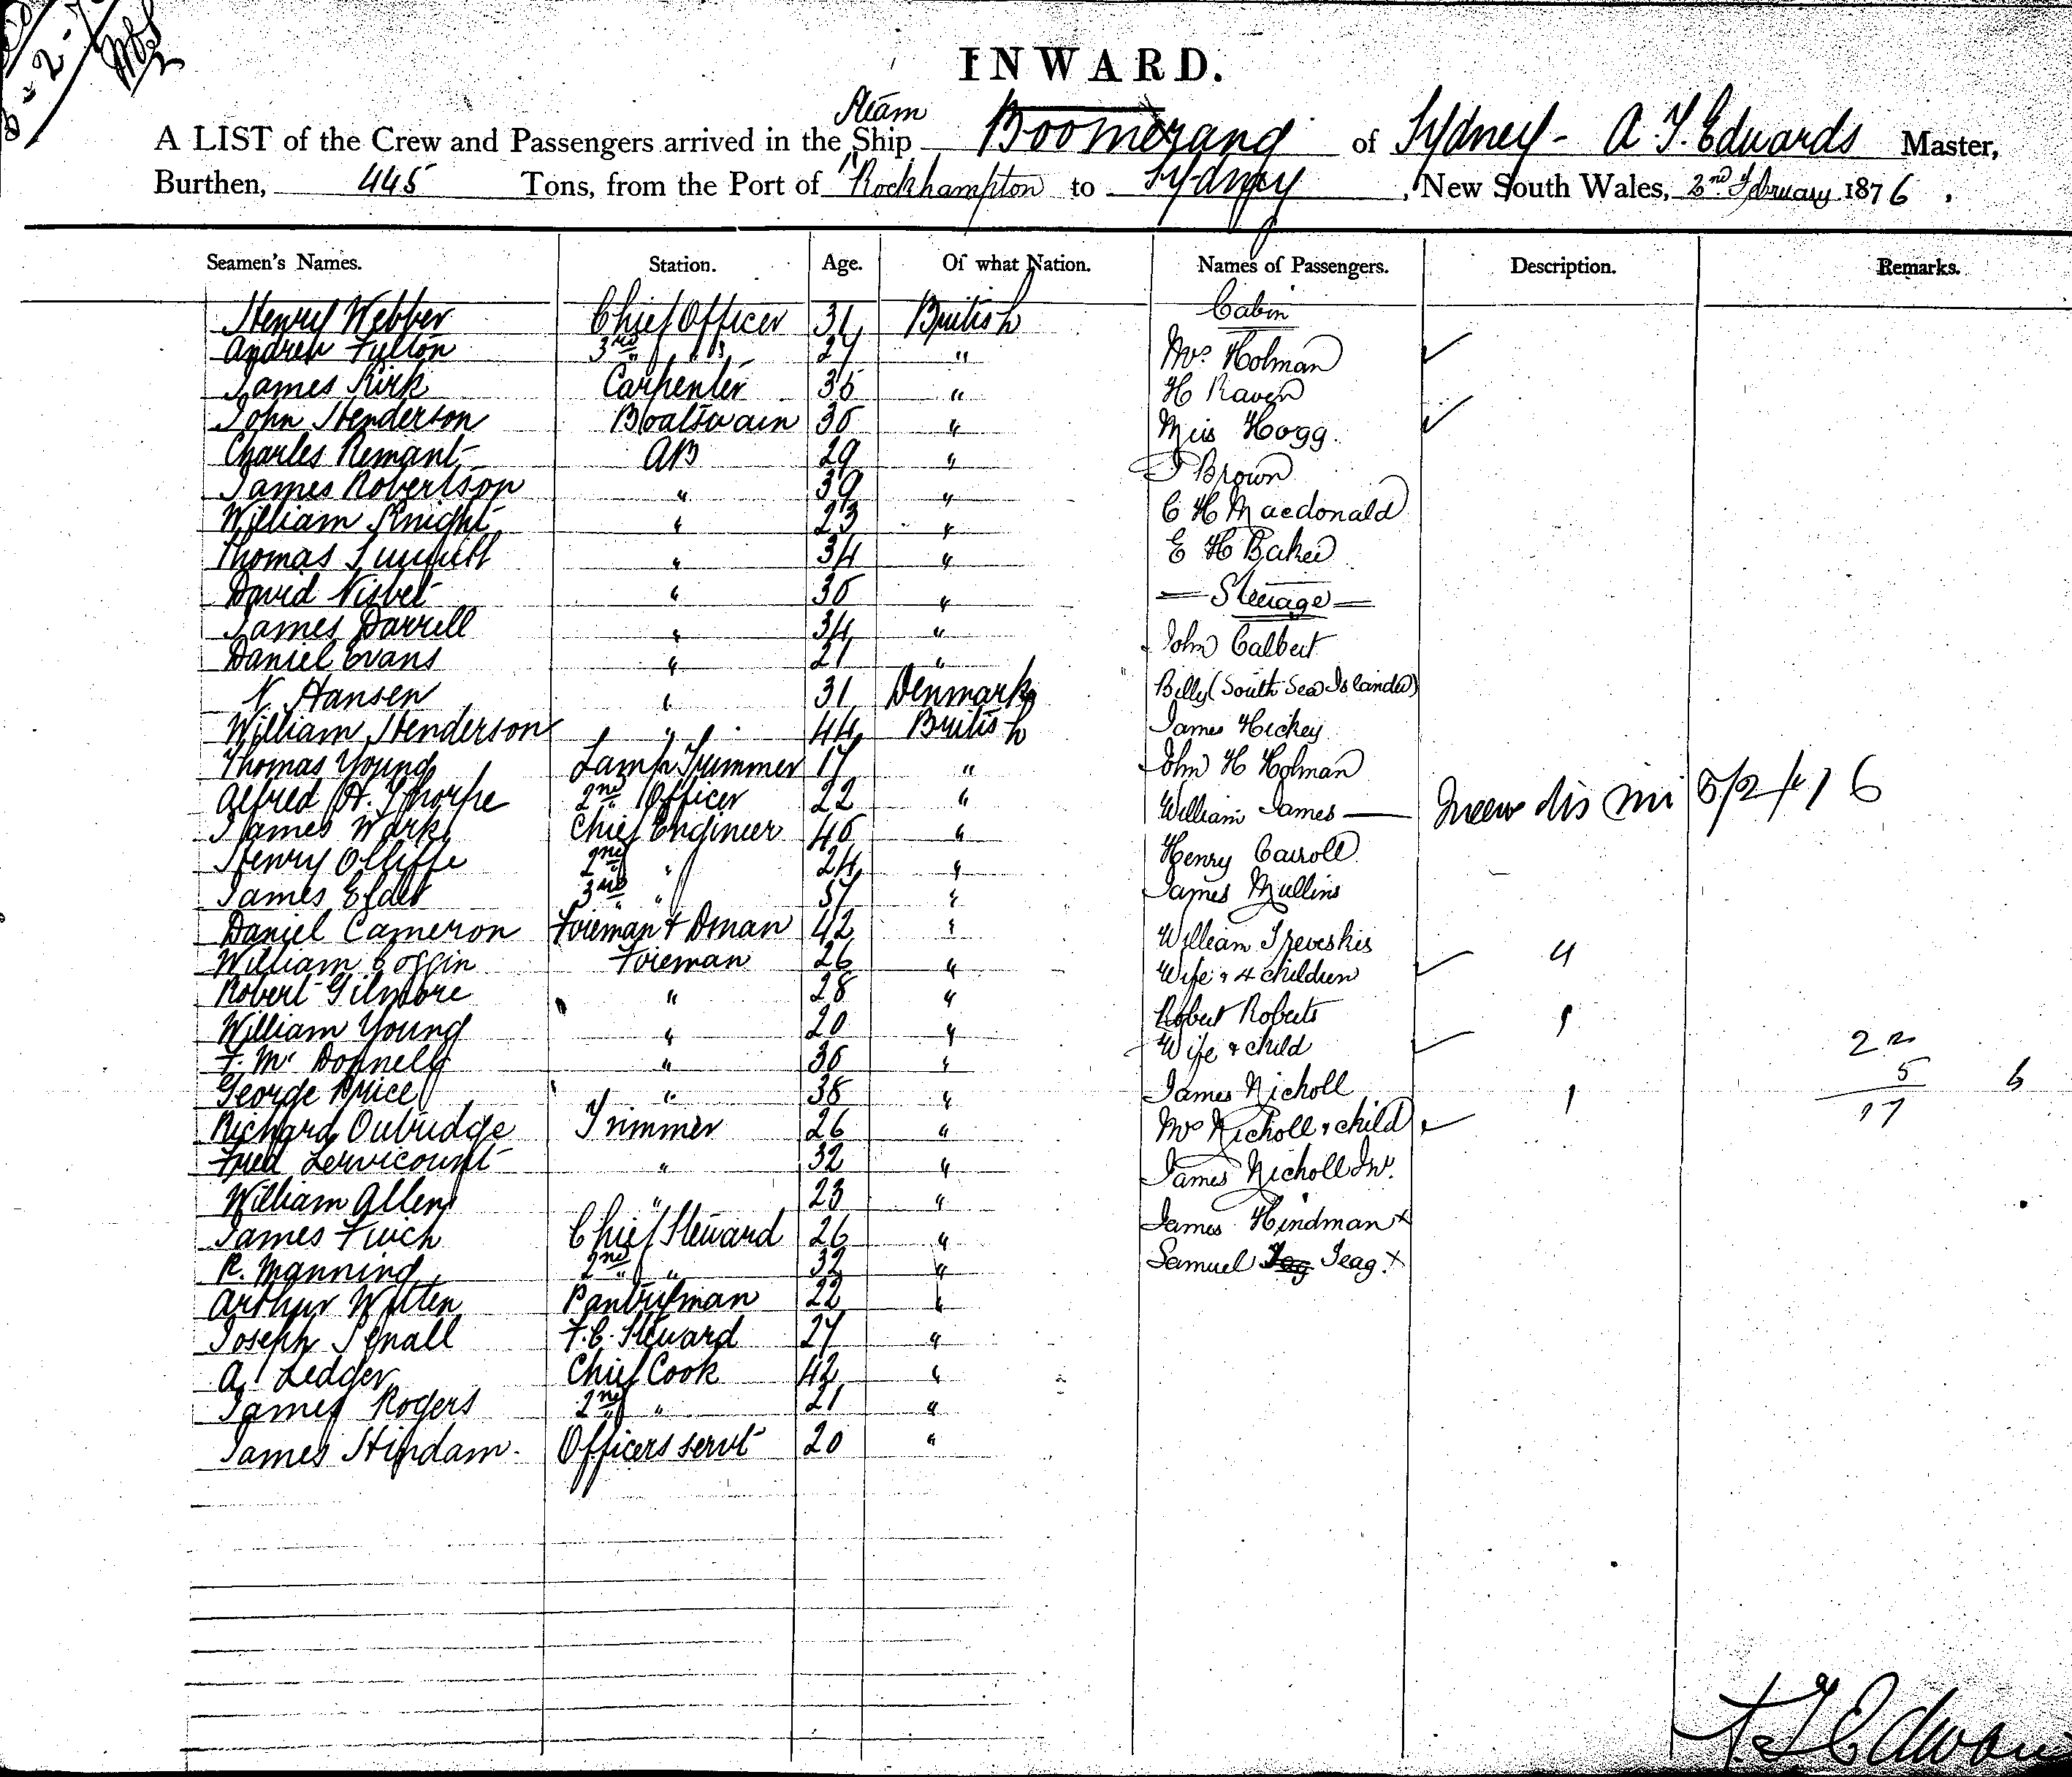 INWARD.
Steam
A LIST of the Crew and Passengers arrived in the Ship Boomerang of Sydney - A. T. Edwards Master,
Burthen, 445 Tons, from the Port of Rockhampton to Sydney, New South Wales, 2nd February 1876.
Seamen's Names. Station. Age. Of what Nation. Names of Passengers. Description. Remarks.
Henry Webber Chief Officer 31 British Cabin
Andrew Fulton 3rd " " 27 " Mrs Holman ✓
James Kirk Carpenter 35 " H Raven
John Henderson Boatswain 30 " Miss Hogg. ✓
Charles Remant AB 29 " J Brown
James Robertson " 39 " C H Macdonald
William Knight " 23 " E H Baker
Thomas " 34 "
David Nisbet " 30 " — Steerage —
James Darrell " 34 " John Calbert
Daniel Evans " 21 " Billy (South Sea Islander)
N. Hansen " 31 Denmark James Hickey
William Henderson " 44 British John H Holman
Thomas Young Lamp Trimmer 17 "
Alfred H. Thorpe 2nd Officer 22 " William James —
James Wark Chief Engineer 46 " Henry Carroll
Henry Olliffe 2nd " 24 " James Mullins
James Elder 3rd " 37 "
Daniel Cameron Foreman & Dman 42 " William Treveskis
William Coffin Foreman 26 " Wife & 4 children ✓ 4
Robert Gilmore " 28 " Robert Roberts
William Young " 20 " Wife & child ✓ 1
F. McDonnell " 30 " James Nicholl
George Price " 38 " Mrs Nicholl & child ✓ 1
Richard Oubridge Trimmer 26 " James Nicholl Jnr.
Fred Lervicount " 32 " James Hindman x
William Allen " 23 " Samuel Teag. x
James Finch Chief Steward 26 "
R. Manning 2nd " 32 "
Arthur Witten Pantryman 22 "
Joseph F.C. Steward 27 "
A. Ledger Chief Cook 42 "
James Rogers 2nd " 21 "
James Hindam. Officers servt 20 "
22
5 6
17